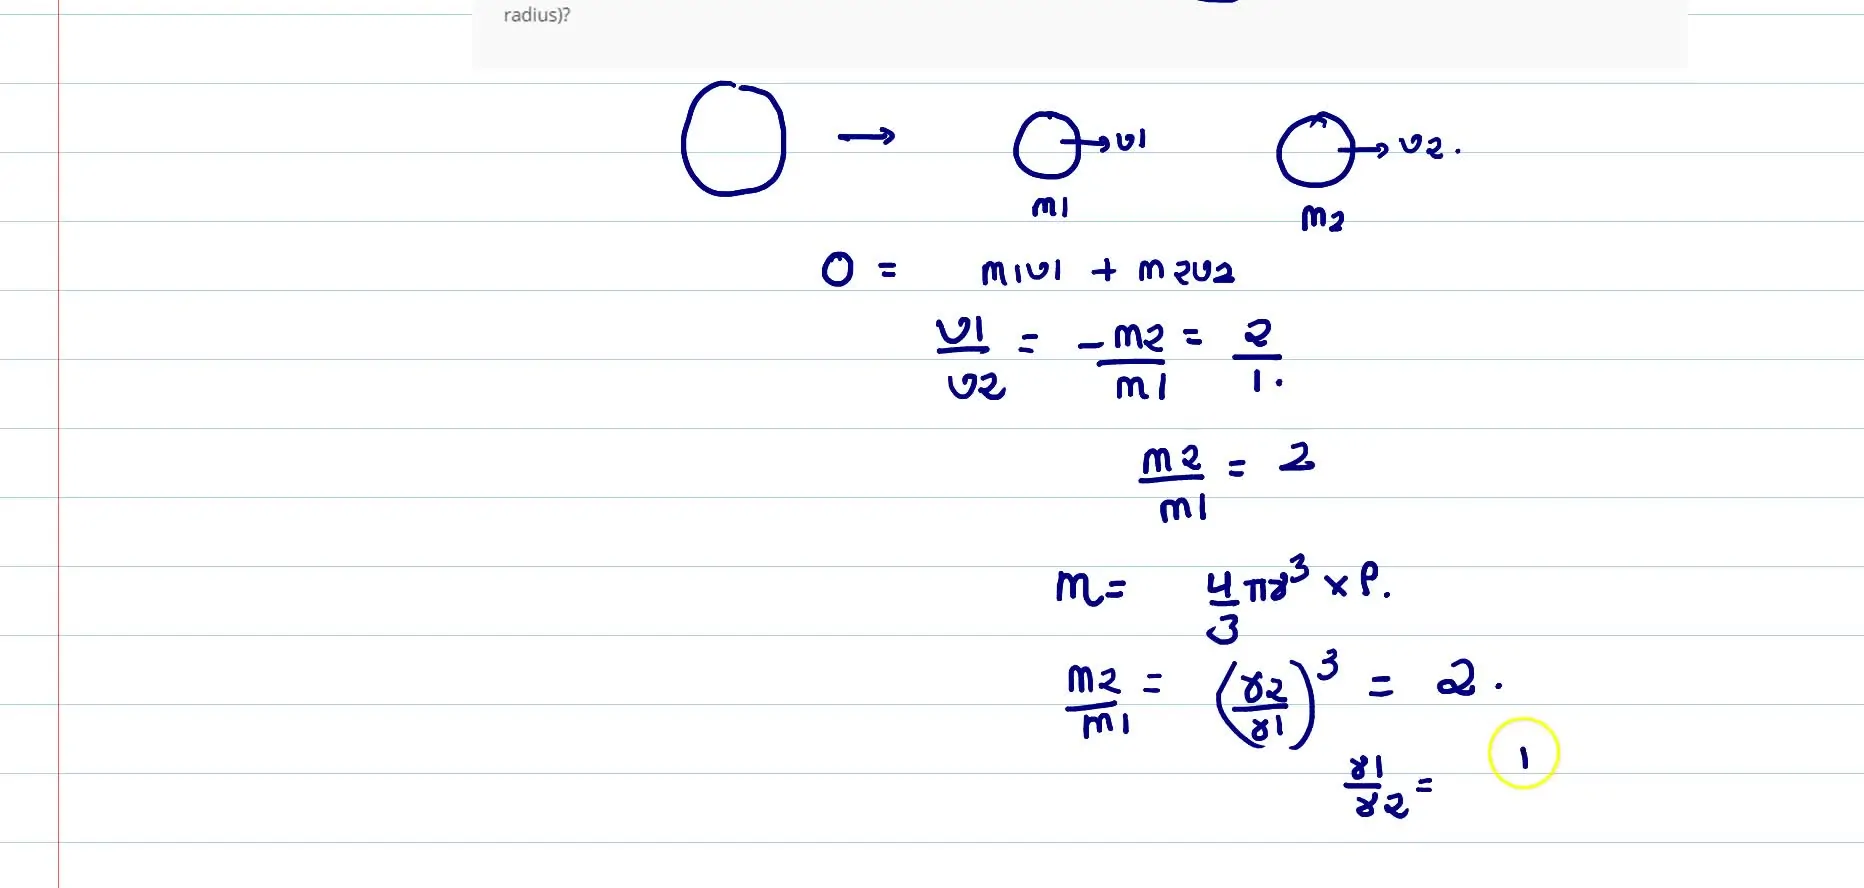 radius)?
→ v1 → v2.
m1 m2
0 = m1v1 + m2v2
v1/v2 = -m2/m1 = 2/1.
m2/m1 = 2
m = 4/3 πr³ × ρ.
m2/m1 = (r2/r1)³ = 2.
r1/r2 = 1